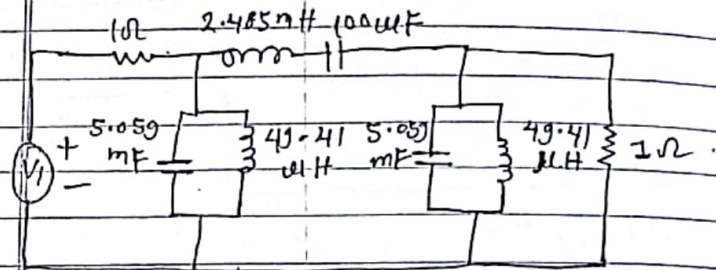 1Ω 2.485mH 100μF
5.059 mF 49.41 μH 5.059 mF 49.41 μH 1Ω
V1 + -